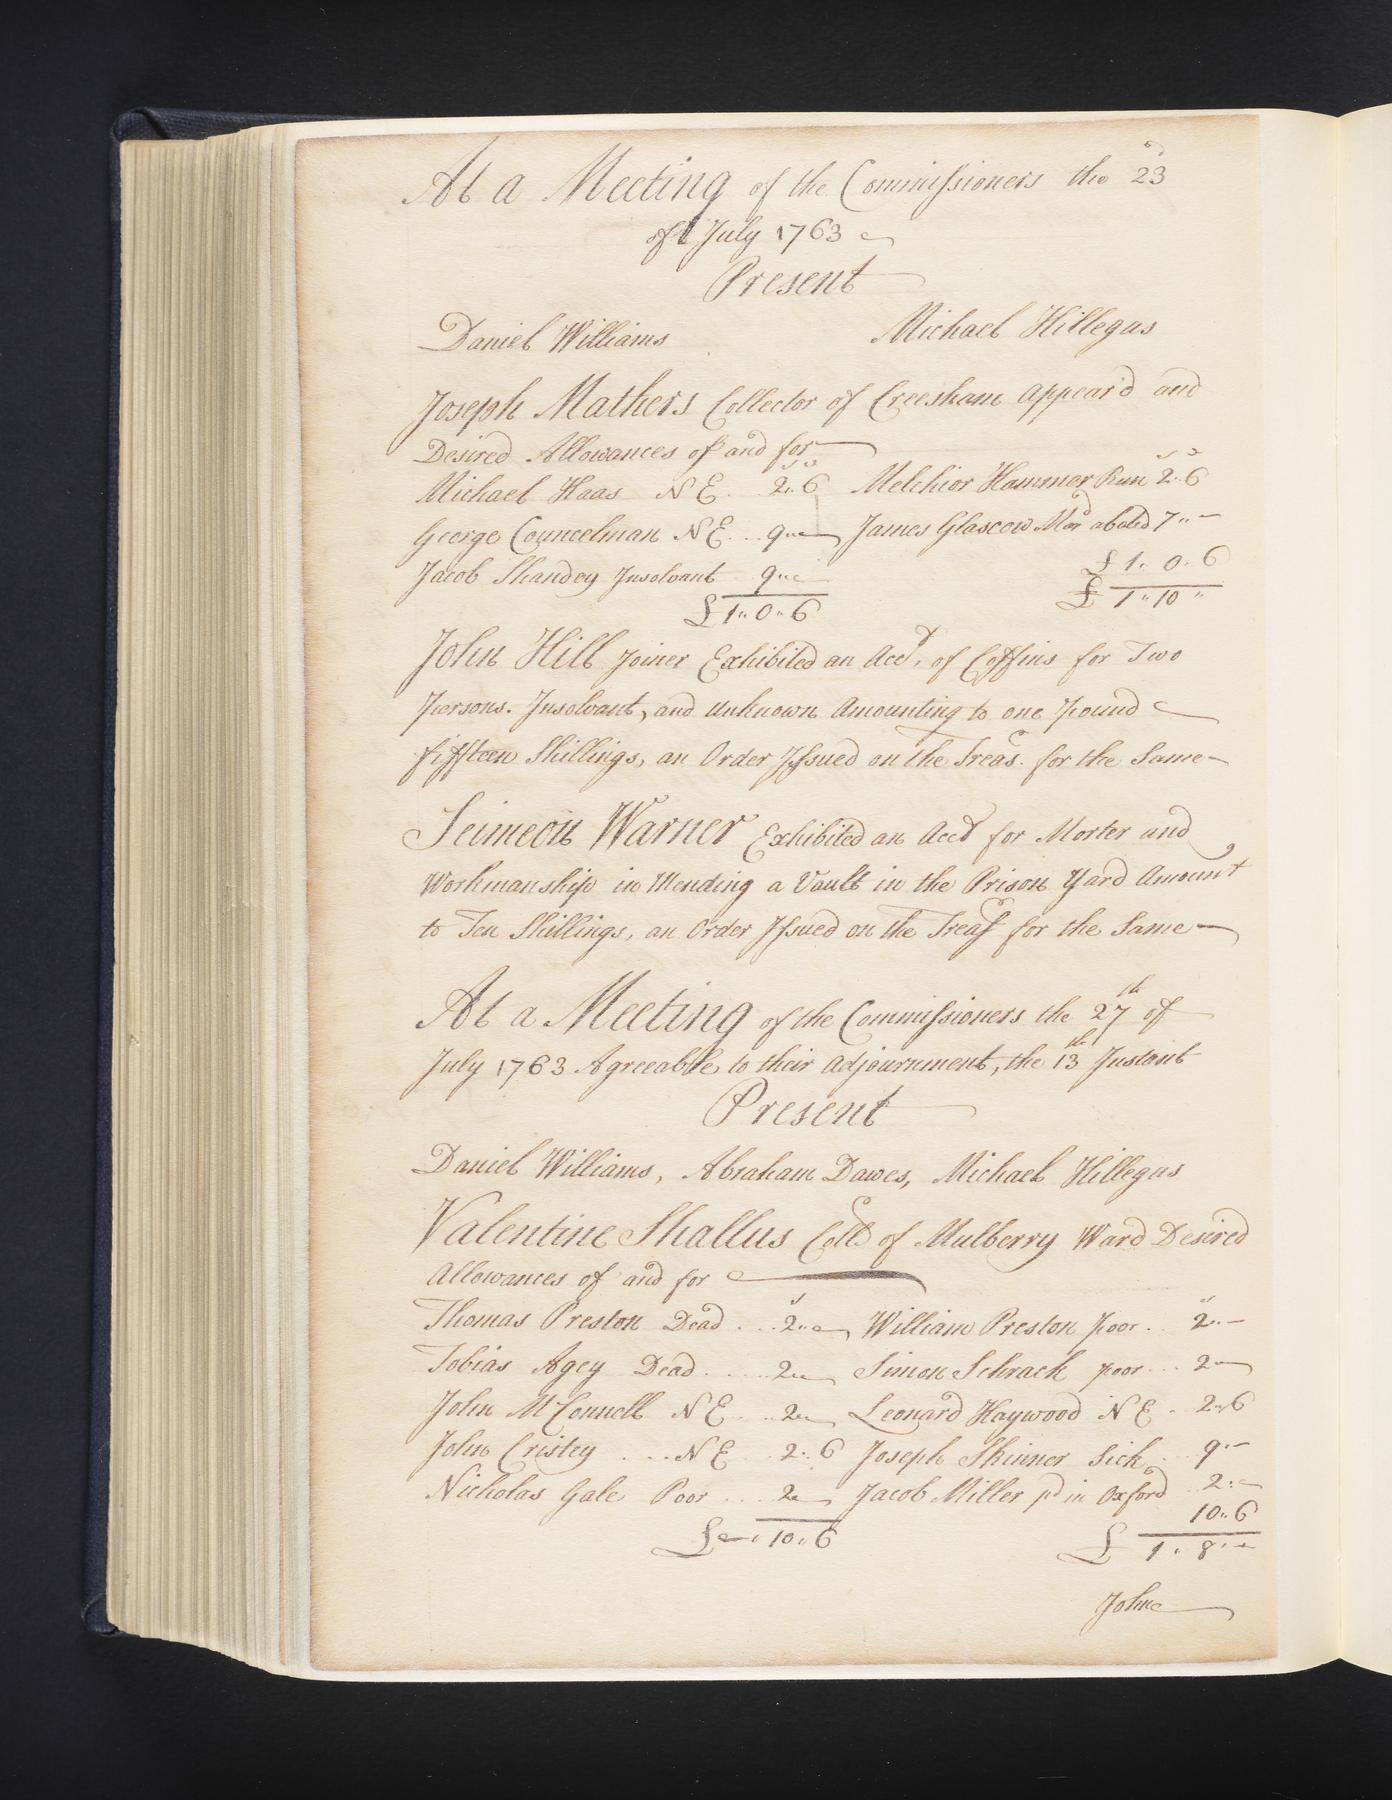 At a Meeting of the Commissioners the 23d
of July 1763
Present
Daniel Williams Michael Hillegas
Joseph Mathers Collector of Creesham Appear'd and
Desired Allowances of and for
Michael Haas N E. 2.. 6 Melchior Hammer Run 2.. 6
George Councelman N E... 9.. — James Glascow Mard abated 7.. —
Jacob Shandey Insolvant 9.. — £ 1.. 0.. 6
£ 1.. 0.. 6 £ 1.. 10..
John Hill Joiner Exhibited an Acct. of Coffins for Two
Persons. Insolvant, and unknown Amounting to one pound
fiffteen Shillings, an Order Issued on the Treas. for the Same —
Seimeon Warner Exhibited an Acct for Morter and
Workmanship in Mending a Vault in the Prison Yard Amount
to Ten Shillings, an Order Issued on the Treas for the Same —
At a Meeting of the Commissioners the 27th of
July 1763 Agreeable to their Adjournment, the 13th Instant
Present
Daniel Williams, Abraham Dawes, Michael Hillegas
Valentine Shallus Coll of Mulberry Ward Desired
Allowances of and for
Thomas Preston Dead . .. 2.. — William Preston poor .. 2.. —
Tobias Agey Dead ...... 2.. — Simon Schrack poor ... 2 —
John McConnell N E .. 2.. — Leonard Haywood N E . 2.. 6
John Cristey .... N E .. 2.. 6 Joseph Skinner Sick ... 9.. —
Nicholas Gale Poor .... 2 — Jacob Miller pd in Oxford .. 2.. —
10.. 6
£ — .. 10.. 6 £ 1.. 8.. —
John